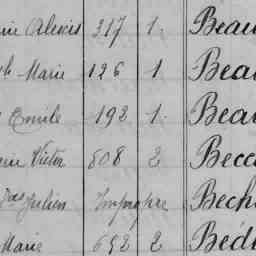 Alexis 317 1. Beau
Marie 126 1 Bea
Emile 193 1. Bea
Victor 808 2 Becc
Julien Impropre Bech
Marie 652 2 Béd